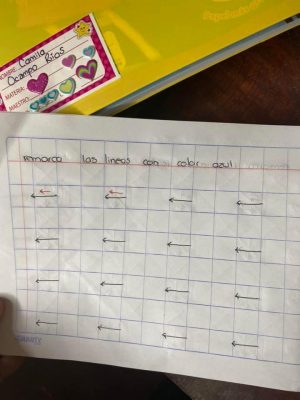 NOMBRE: Camila
Ocampo Rios
MATERIA:
MAESTRO
remarca las lineas con color azul